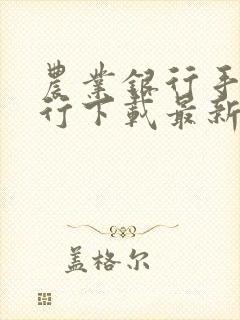 農業銀行手
行下載最新
盖格尔